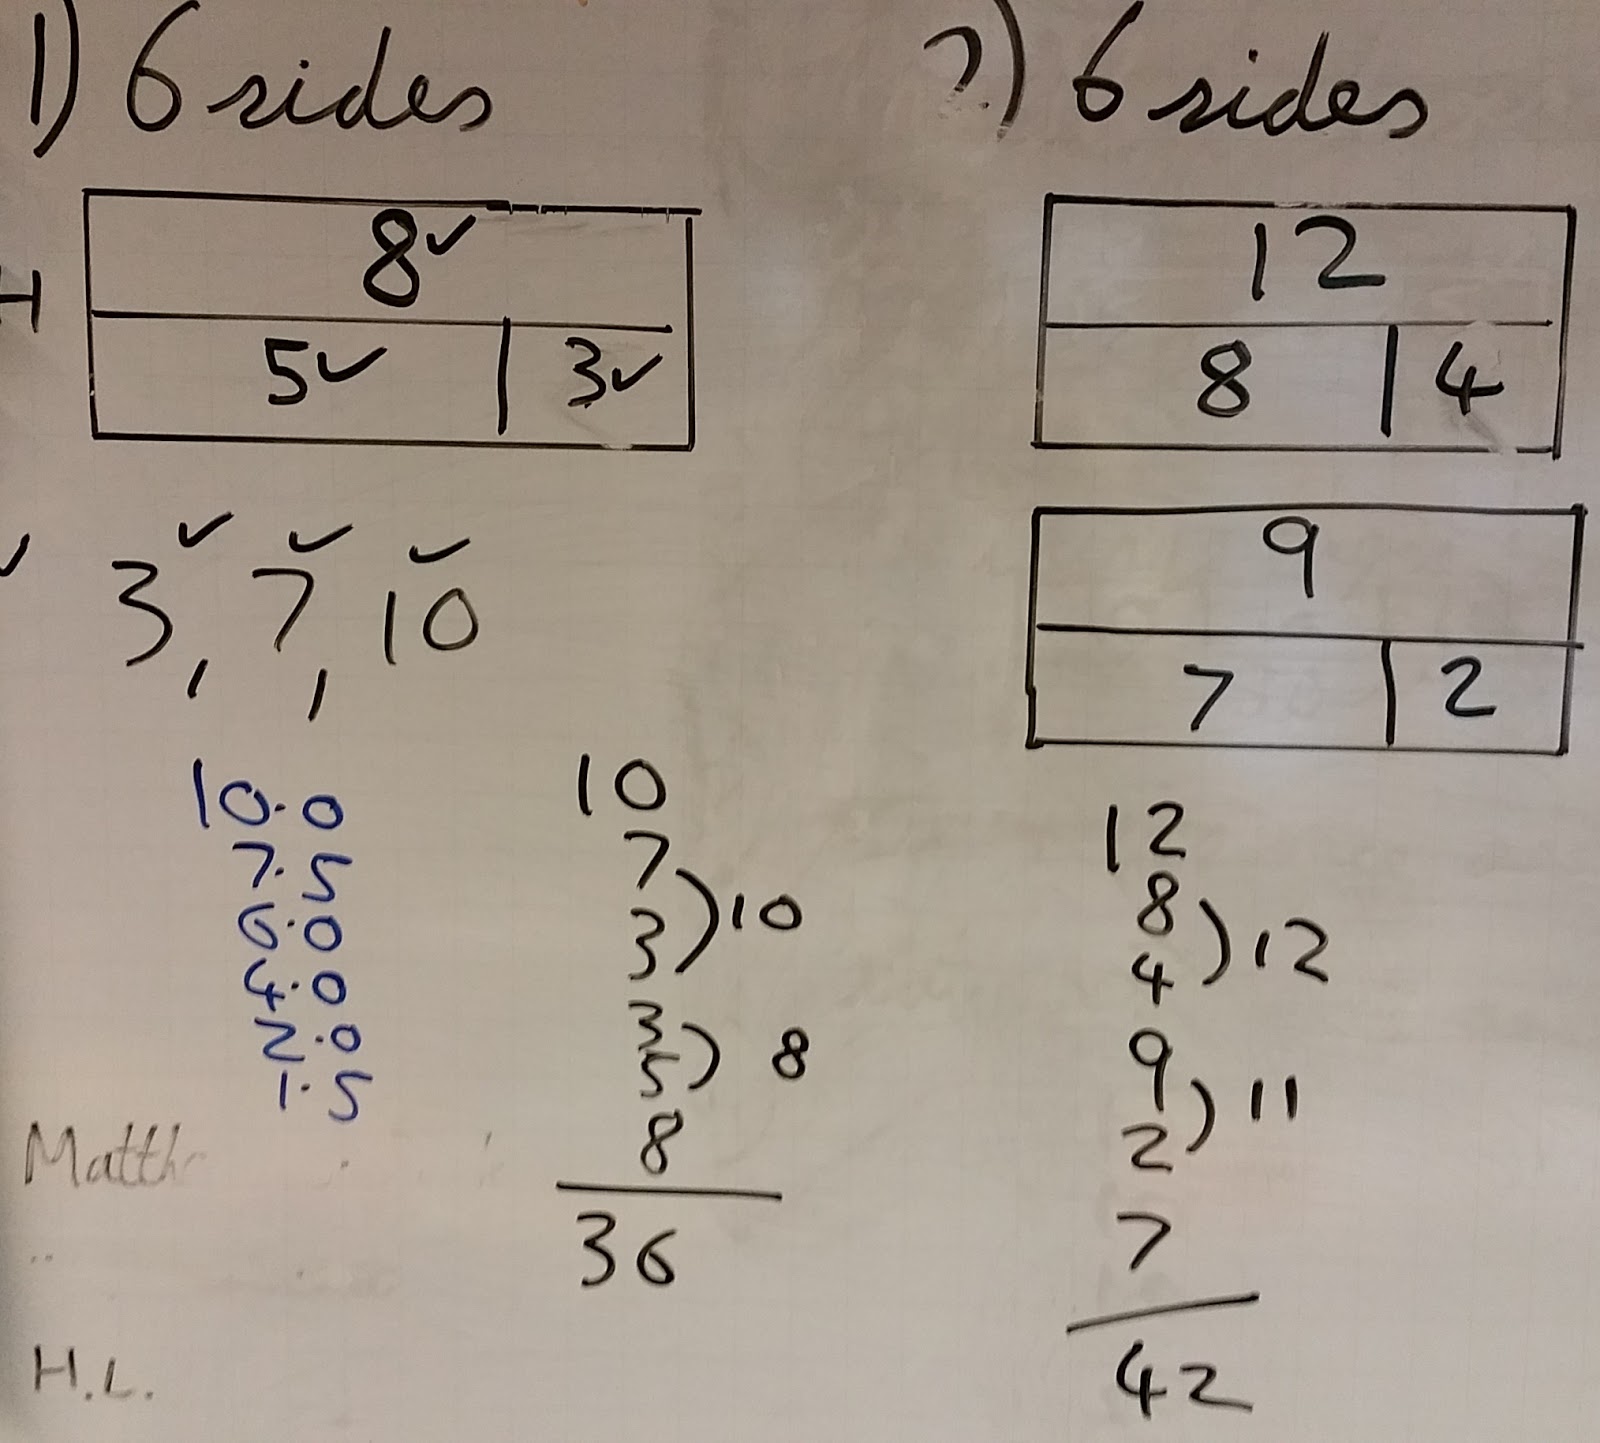 1) 6 sides
8✓
H
5✓ 3✓
✓ 3✓, 7✓, 10✓
10.0
7.5
6.0
4.0
2.0
1.5
10
7
3 ) 10
3
5 ) 8
8
36
2) 6 sides
12
8 4
9
7 2
12
8
4 ) 12
9
2 ) 11
7
42
H.L.